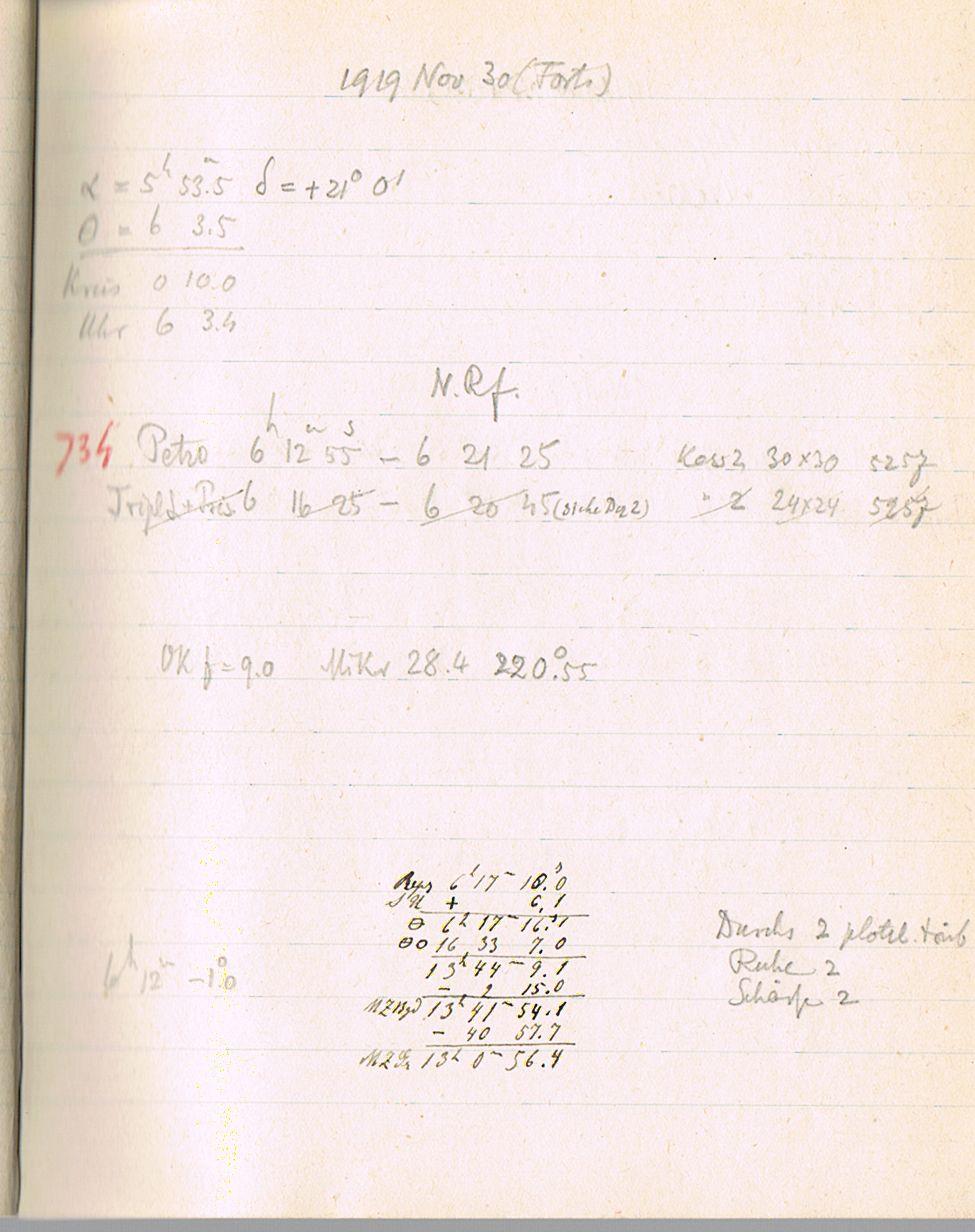 1919 Nov. 30 (Forts)
α = 5ʰ 53ᵐ.5 δ = +21° 0'
θ = 6 3.5
Kreis 0 10.0
Uhr 6 3.4
N.Rf.
734 Petro 6ʰ 12ᵐ 55ˢ – 6 21 25 Kass 2 30×30 5257
Tripl + Pris 6 16 25 – 6 20 45 (siehe 2) " 2 24×24 5257
OK f = 9.0 Mikr 28.4 220°.55
6ʰ 17ᵐ 10ˢ.0
+ 6.1
θ 6ʰ 17ᵐ 16ˢ.1
θ0 16 33 7.0
13ʰ 44ᵐ 9.1
– 2 15.0
MZBgd 13ʰ 41ᵐ 54.1
– 40 57.7
MZGr 13ʰ 0ᵐ 56.4
Durchs 2 plötzl. trüb
Ruhe 2
Schärfe 2
6ʰ 12ᵐ –1°.0